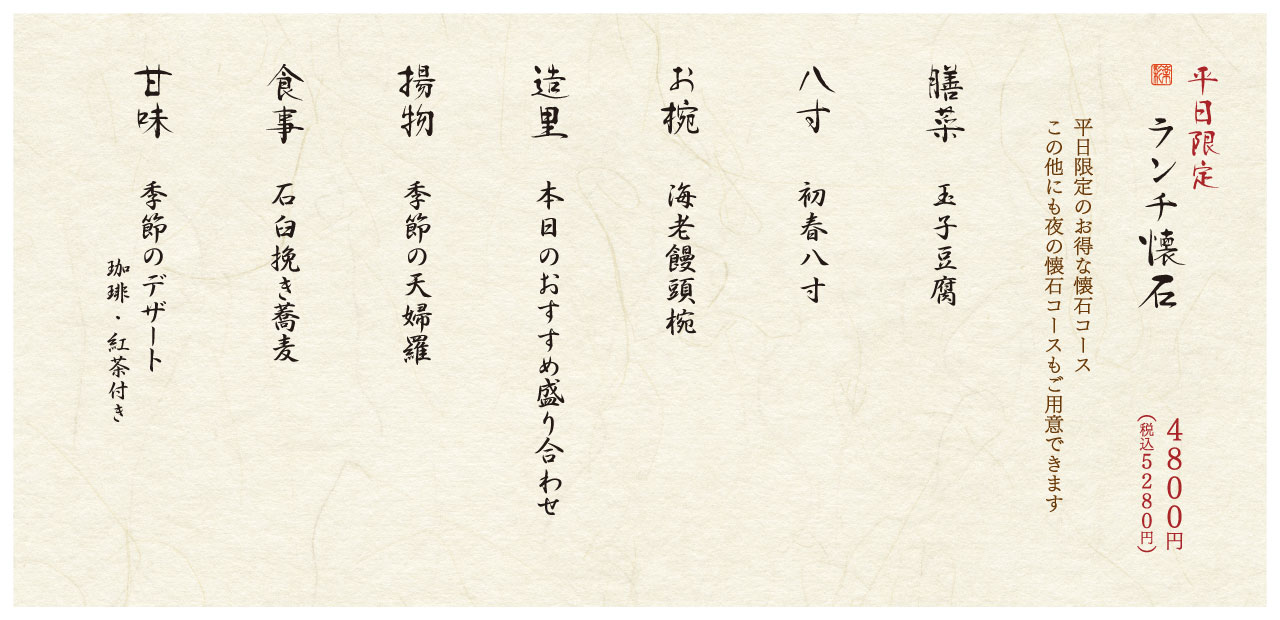 平日限定
ランチ懐石
4800円
(税込5280円)
平日限定のお得な懐石コース
この他にも夜の懐石コースもご用意できます
膳菜
玉子豆腐
八寸
初春八寸
お椀
海老饅頭椀
造里
本日のおすすめ盛り合わせ
揚物
季節の天婦羅
食事
石臼挽き蕎麦
甘味
季節のデザート
珈琲・紅茶付き